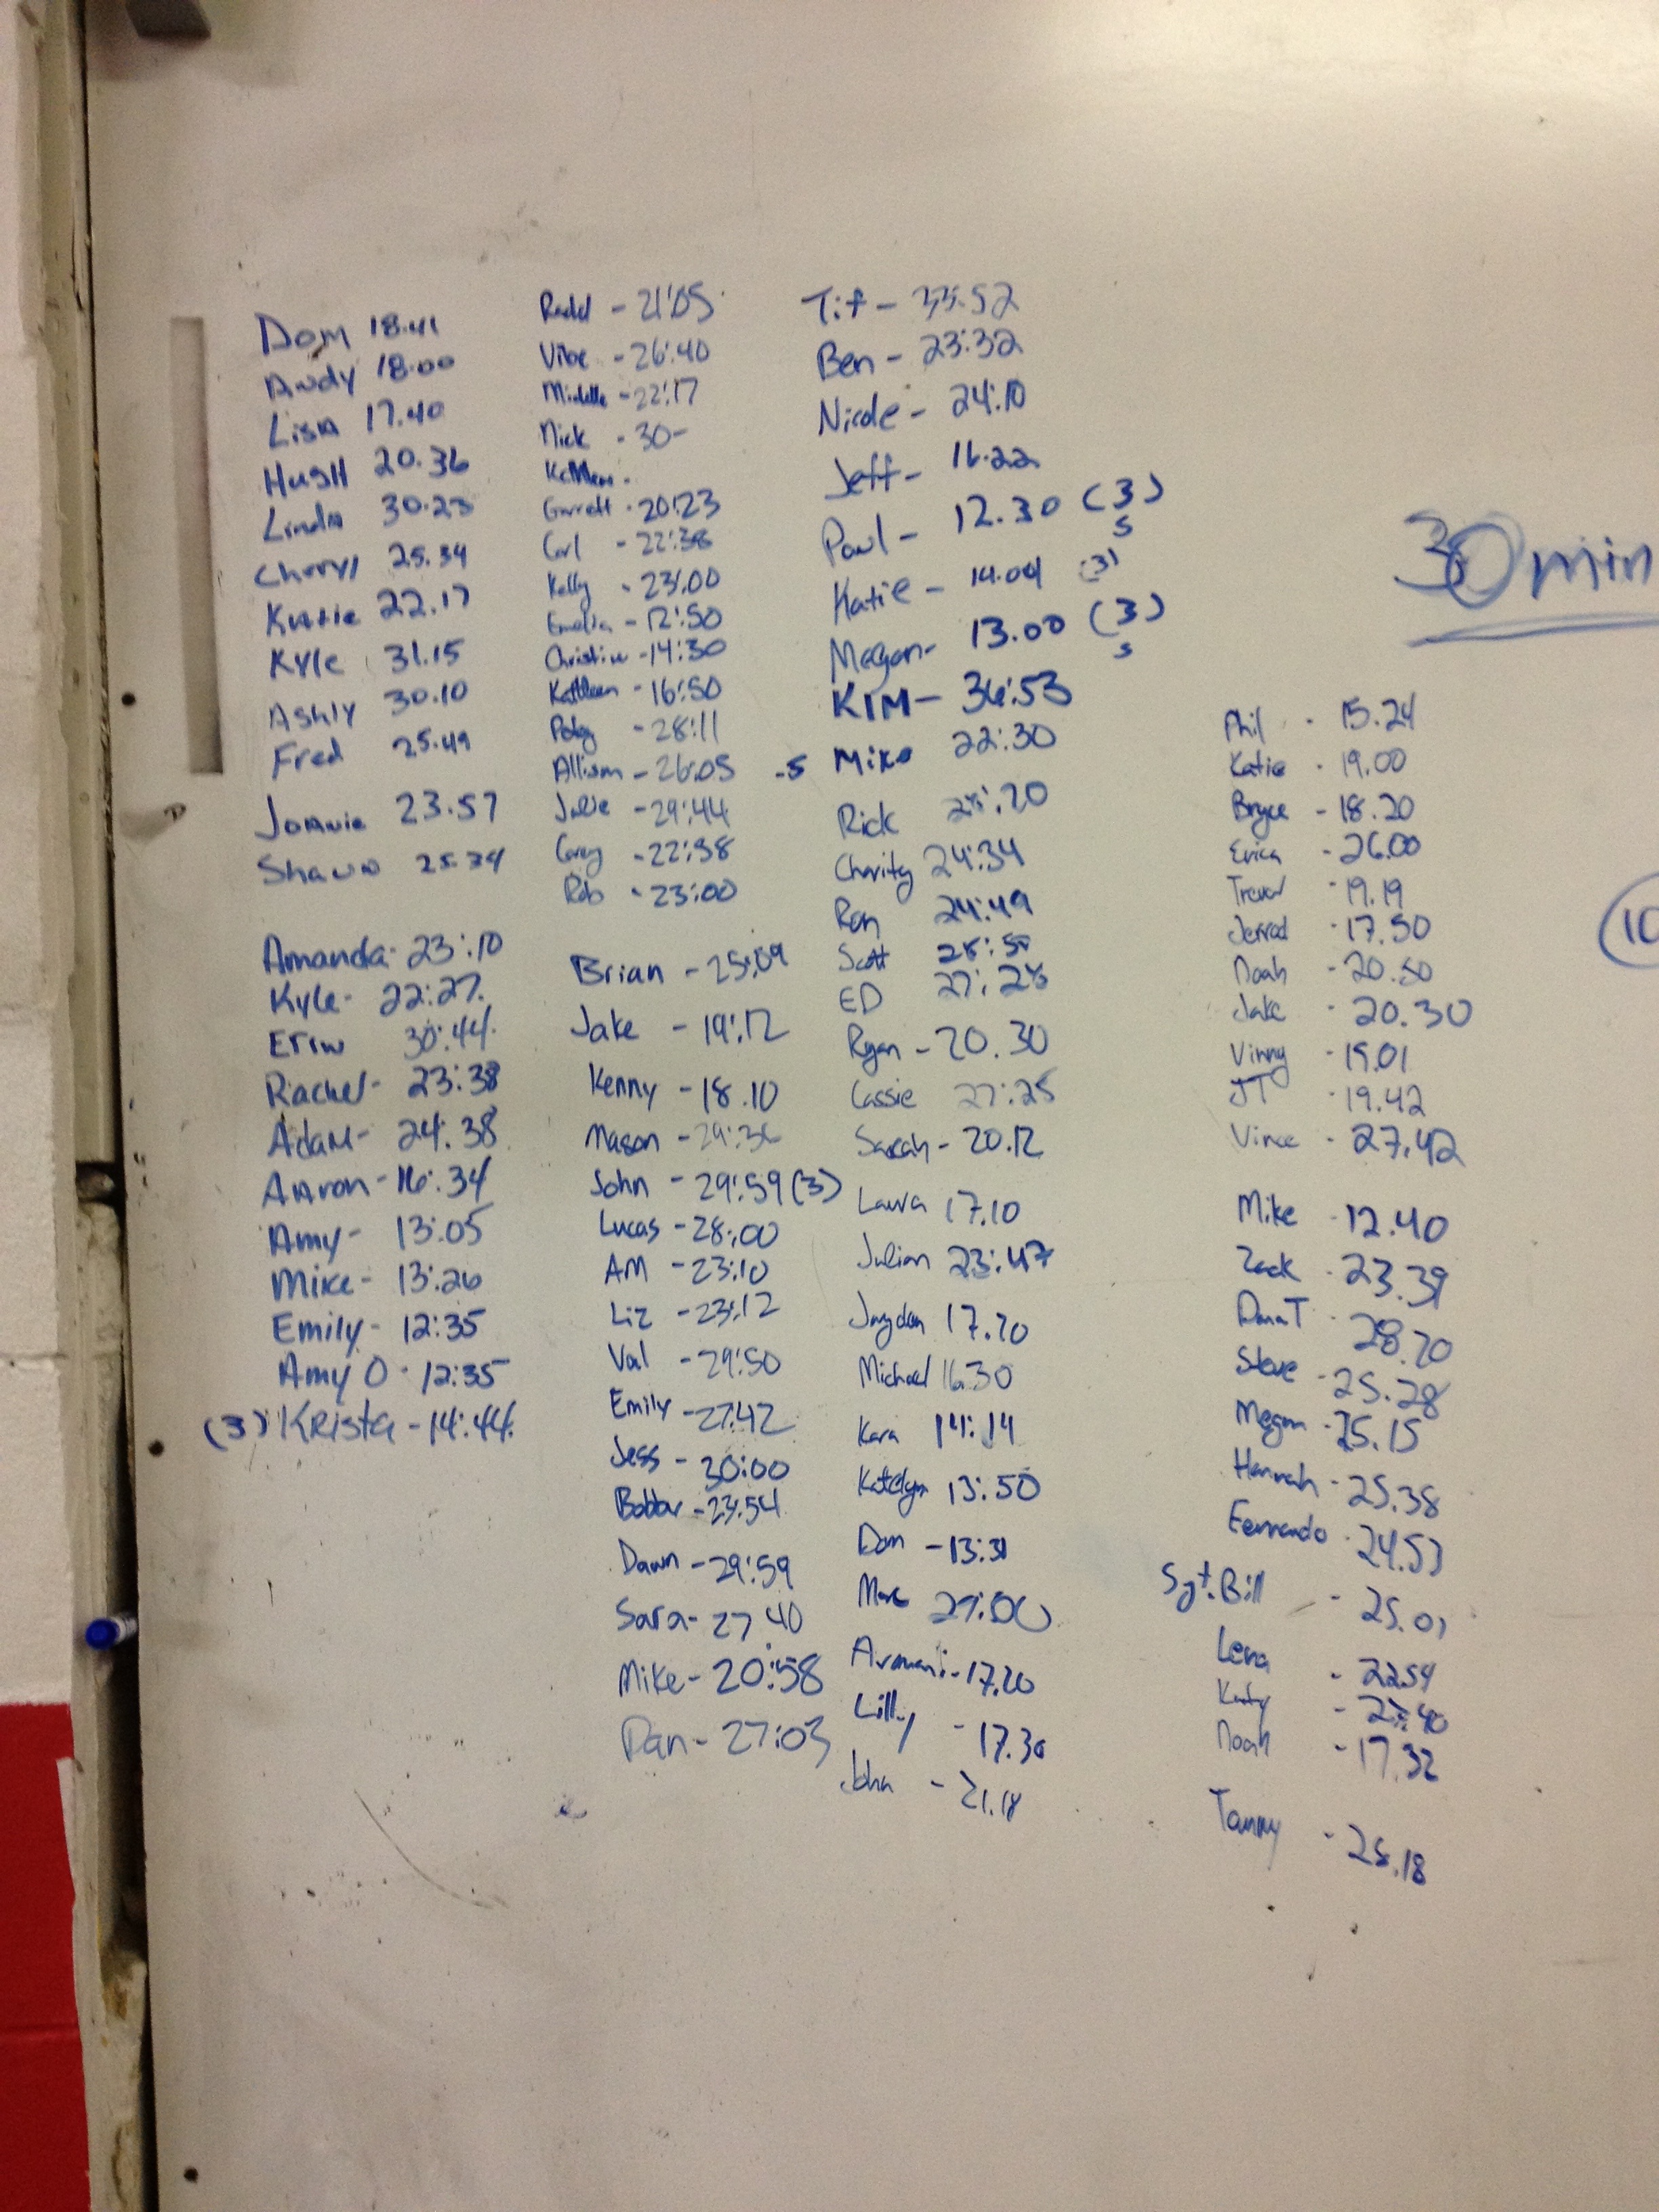 Dom 18.41
Andy 18.00
Lisa 17.40
Hugh 20.36
Linda 30.23
Cheryl 25.34
Katie 22.17
Kyle 31.15
Ashly 30.10
Fred 25.49
23.57
Shawn 25.34
Amanda- 23:10
Kyle- 22:27.
Erin 30:44
Rachel- 23:38
Adam- 24:38
Aaron- 16:34
Amy- 13:05
Mike- 13:26
Emily- 12:35
Amy O - 12:35
(3) Krista - 14:44
- 21:05
- 26:40
Michelle - 22:17
Nick - 30-
Kathleen -
Garrett - 20:23
Carl - 22:38
Kelly - 23:00
Emelia - 12:50
Christine - 14:30
Kathleen - 16:50
- 28:11
Allison - 26:05
Julie - 29:44
Corey - 22:38
Rob - 23:00
Brian - 25:09
Jake - 19:12
Kenny - 18.10
Mason - 29:36
John - 29:59 (3)
Lucas - 28:00
AM - 23:10
Liz - 23:12
Val - 29:50
Emily - 27:42
Jess - 30:00
- 23:54
Dawn - 29:59
Sara- 27 40
Mike- 20:58
Dan- 27:03
Tif - 33:52
Ben - 23:32
Nicole - 24:10
Jeff- 16.22
Paul - 12.30 (3) s
Katie - 14.04 (3)
Megan- 13.00 (3) s
KIM - 36:53
-5 Mike 22:30
Rick
Charity 24:34
Ron 24:49
Scott 28:50
ED 27:28
Ryan - 20.30
Cassie 27:25
Sarah - 20.12
Laura 17.10
Julian 23:47
Jayden 17.20
Michael 16.30
Kara 14:14
Katelyn 13:50
Dom - 13:31
27:00
Armani - 17.20
Lilly - 17.30
John - 21.18
30 min
10
Phil - 15.24
Katie - 19.00
Bryce - 18.20
Erica - 26.00
Trevor - 19.19
Jerrod - 17.50
Noah - 20.50
Jake - 20.30
Vinny - 19.01
JT - 19.42
Vince - 27.42
Mike - 12.40
Zack - 23.39
Dana T - 28.20
Steve - 25.28
Megan - 25.15
Hannah - 25.38
Fernando - 24.53
Sgt. Bill - 25.01
Lena - 22.54
Katy
Noah - 17.32
Tammy - 25.18